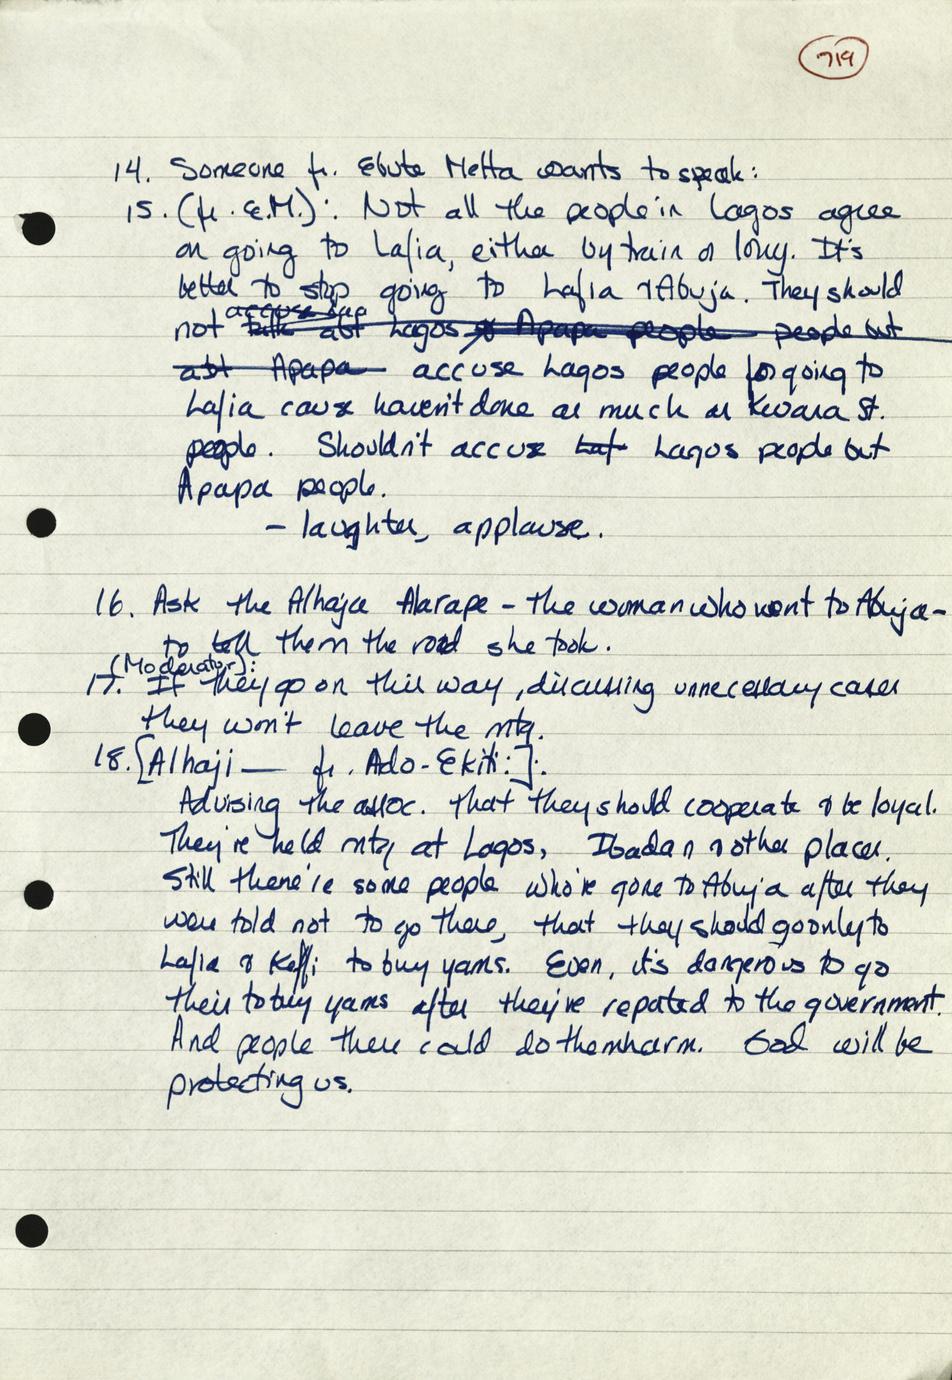 719
14. Someone fr. Ebute Metta wants to speak:
15. (fr. E.M.): Not all the people in Lagos agree
on going to Lafia, either by train or lorry. It's
better to stop going to Lafia & Abuja. They should
accuse
not talk abt Lagos Apapa people people but
abt Apapa accuse Lagos people for going to
Lafia cause haven't done as much as Kwara St.
people. Shouldn't accuse Lagos people but
Apapa people.
- laughter, applause.
16. Ask the Alhaja Alarape - the woman who went to Abuja -
to tell them the road she took.
(Moderator):
17. If they go on this way, discussing unnecessary cases
they won't leave the mtg.
18. [Alhaji — fr. Ado-Ekiti:]:
Advising the assoc. that they should cooperate & be loyal.
They're held mtg at Lagos, Ibadan & other places.
Still there're some people who've gone to Abuja after they
were told not to go there, that they should go only to
Lafia & Keffi to buy yams. Even, it's dangerous to go
their to buy yams after they've reported to the government.
And people there could do them harm. God will be
protecting us.